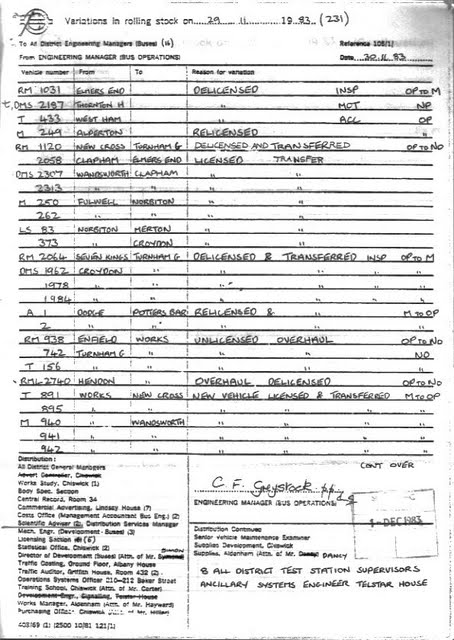 Variations in rolling stock on 29 11 1983 (231)
To All District Engineering Managers (Buses) (16) Reference 108/1/
From ENGINEERING MANAGER (BUS OPERATIONS) Date 30.11.83
Vehicle number From To Reason for variation
RM 1031 ELMERS END DELICENSED INSP OP TO M
DMS 2187 THORNTON H " MOT NP
T 433 WEST HAM " ACC OP
M 249 ALPERTON RELICENSED "
RM 1120 NEW CROSS TURNHAM G DELICENSED AND TRANSFERRED OP TO NO
2058 CLAPHAM ELMERS END LICENSED TRANSFER
DMS 2307 WANDSWORTH CLAPHAM " "
2313 " " " "
M 250 FULWELL NORBITON " "
262 " " " "
LS 83 NORBITON MERTON " "
373 " CROYDON " "
RM 2064 SEVEN KINGS TURNHAM G DELICENSED & TRANSFERRED INSP OP TO M
DMS 1962 CROYDON " " " "
1978 " " " " "
1984 " " " " "
A 1 DODGE POTTERS BAR RELICENSED & " M TO OP
2 " " " " "
RM 938 ENFIELD WORKS UNLICENSED OVERHAUL OP TO NO
742 TURNHAM G " " " NO
T 156 " " " " "
RML 2740 HENDON " OVERHAUL DELICENSED OP TO NO
T 891 WORKS NEW CROSS NEW VEHICLE LICENSED & TRANSFERRED M TO OP
895 " " " " "
M 940 " WANDSWORTH " " "
941 " " " " "
942 " " " " "
CONT OVER
Distribution:
All District General Managers
Advert Controller, Chiswick
Works Study, Chiswick (1)
Body Spec. Section
Central Record, Room 34
Commercial Advertising, Lindsay House (7)
Costs Office (Management Accountant Bus Eng.) (2)
Scientific Adviser (2), Distribution Services Manager
Mech. Engr. (Development-Buses) (3)
Licensing Section (6)
Statistical Office, Chiswick (2)
Director of Development (Buses) (Attn. of Mr.
Traffic Costing, Ground Floor, Albany House
Traffic Auditor, Griffith House, Room 432 (2)
Operations Systems Officer 210-212 Baker Street
Training School, Chiswick (Attn. of Mr. Carter)
Development Engr., Signalling, Telstar House
Works Manager, Aldenham (Attn. of Mr. Hayward)
Purchasing Officer Chiswick
C. F. Greystock
ENGINEERING MANAGER (BUS OPERATIONS)
1-DEC 1983
Distribution Continued
Senior Vehicle Maintenance Examiner
Supplies Development, Chiswick
Supplies, Aldenham (Attn. of Mr. DANCY
8 ALL DISTRICT TEST STATION SUPERVISORS
ANCILLARY SYSTEMS ENGINEER TELSTAR HOUSE
403/169 (1) (2500 10/81 121/1)